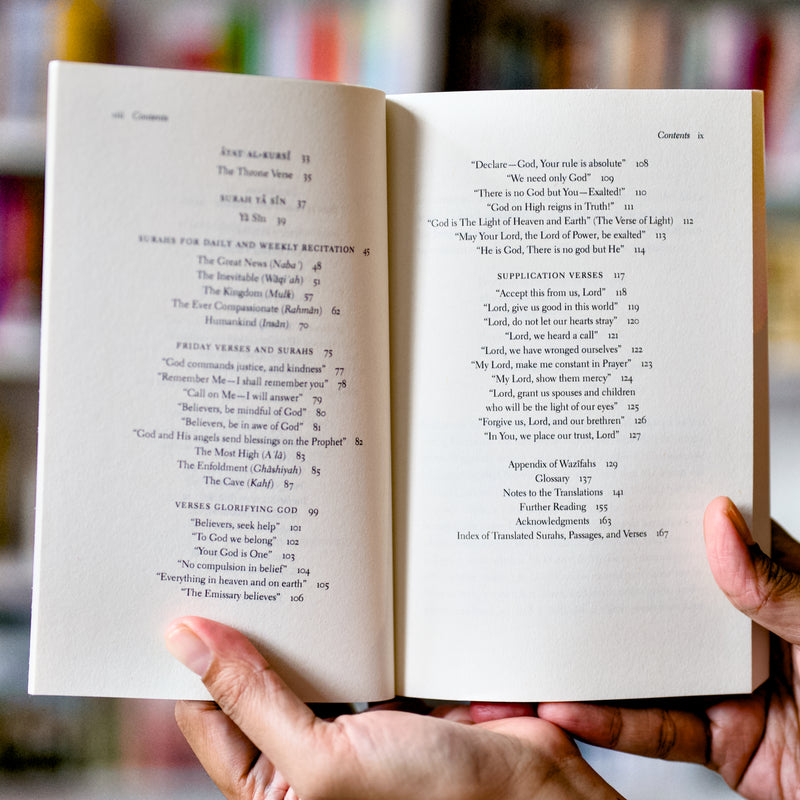 viii Contents
ĀYAT AL-KURSĪ 33
The Throne Verse 35
SURAH YĀ SĪN 37
Yā Sīn 39
SURAHS FOR DAILY AND WEEKLY RECITATION 45
The Great News (Naba ʾ) 48
The Inevitable (Wāqiʿah) 51
The Kingdom (Mulk) 57
The Ever Compassionate (Rahmān) 62
Humankind (Insān) 70
FRIDAY VERSES AND SURAHS 75
“God commands justice, and kindness” 77
“Remember Me—I shall remember you” 78
“Call on Me—I will answer” 79
“Believers, be mindful of God” 80
“Believers, be in awe of God” 81
“God and His angels send blessings on the Prophet” 82
The Most High (Aʿlā) 83
The Enfoldment (Ghāshiyah) 85
The Cave (Kahf) 87
VERSES GLORIFYING GOD 99
“Believers, seek help” 101
“To God we belong” 102
“Your God is One” 103
“No compulsion in belief” 104
“Everything in heaven and on earth” 105
“The Emissary believes” 106
Contents ix
“Declare—God, Your rule is absolute” 108
“We need only God” 109
“There is no God but You—Exalted!” 110
“God on High reigns in Truth!” 111
“God is The Light of Heaven and Earth” (The Verse of Light) 112
“May Your Lord, the Lord of Power, be exalted” 113
“He is God, There is no god but He” 114
SUPPLICATION VERSES 117
“Accept this from us, Lord” 118
“Lord, give us good in this world” 119
“Lord, do not let our hearts stray” 120
“Lord, we heard a call” 121
“Lord, we have wronged ourselves” 122
“My Lord, make me constant in Prayer” 123
“My Lord, show them mercy” 124
“Lord, grant us spouses and children
who will be the light of our eyes” 125
“Forgive us, Lord, and our brethren” 126
“In You, we place our trust, Lord” 127
Appendix of Wazīfahs 129
Glossary 137
Notes to the Translations 141
Further Reading 155
Acknowledgments 163
Index of Translated Surahs, Passages, and Verses 167